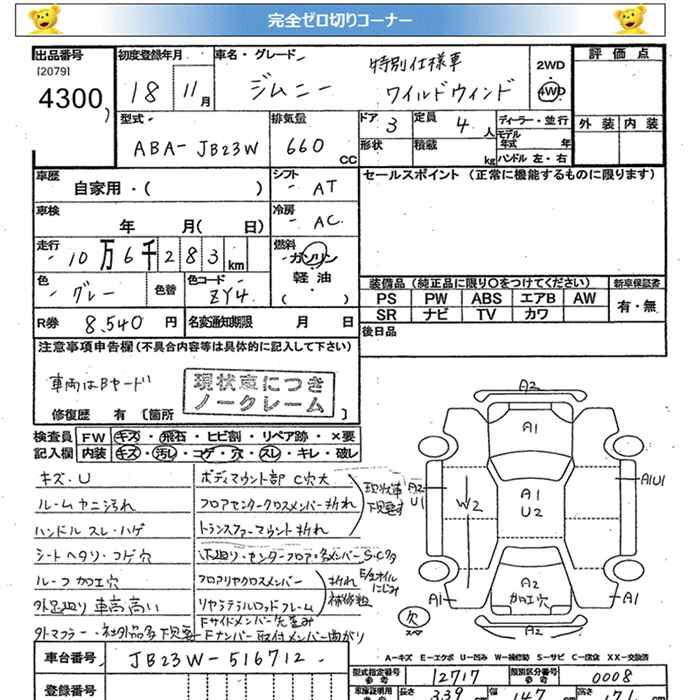 完全ゼロ切りコーナー
出品番号
[2079]
4300
初度登録年月
18 11月
車名・グレード
特別仕様車
ジムニー ワイルドウィンド
2WD
4WD
評価点
外装 内装
型式
ABA-JB23W
排気量
660 CC
ドア 3
定員 4 人
ディーラー・並行
モデル
年式 年
形状
積載 kg
ハンドル 左・右
車歴
自家用・( )
シフト
AT
セールスポイント (正常に機能するものに限ります)
車検
年 月( 日)
冷房
AC
走行
10万6千283km
燃料
ガソリン
軽油
( )
色
グレー
色替
色コード
ZY4
装備品 (純正品に限り○をつけてください)
新車保証書
PS PW ABS エアB AW
SR ナビ TV カワ
有・無
R券 8,540 円
名変通知期限 月 日
後日品
注意事項申告欄 (不具合内容等は具体的に記入して下さい)
車両はBヤード
現状車につき
ノークレーム
修復歴 有 [箇所 ]
検査員 FW キズ・飛石・ヒビ割・リペア跡・×要
記入欄 内装 キズ・汚レ・コゲ・穴・スレ・キレ・破レ
キズ・U
ルームヤニ汚れ
ハンドル スレ・ハゲ
シートヘタリ・コゲ穴
ルーフ加工穴
外足廻り 車高高い
外マフラー・社外品多 下見要
ボディマウント部 C穴大
フロアセンタークロスメンバー折れ
トランスファーマウント折れ
現状車
下見要す
下廻り・センターフロア・各メンバー S・C多
フロアリヤクロスメンバー
リヤラテラルロッドフレーム
折れ
補修粗
E/gオイル
にじみ
Fサイドメンバー先歪み
Fナンバー取付メンバー曲がり
A2
A1
A2
U1
W2
A1
U2
A1U1
A2
加工穴
A1
A1
A2
欠
スペア
A-キズ E-エクボ U-凹み W-補修跡 S-サビ C-腐食 XX-交換済
車台番号
JB23W-516712
型式指定番号
参考
12717
類別区分番号
参考
0008
登録番号
車庫証明用
長さ 339 cm
幅 147 cm
高さ 171 cm